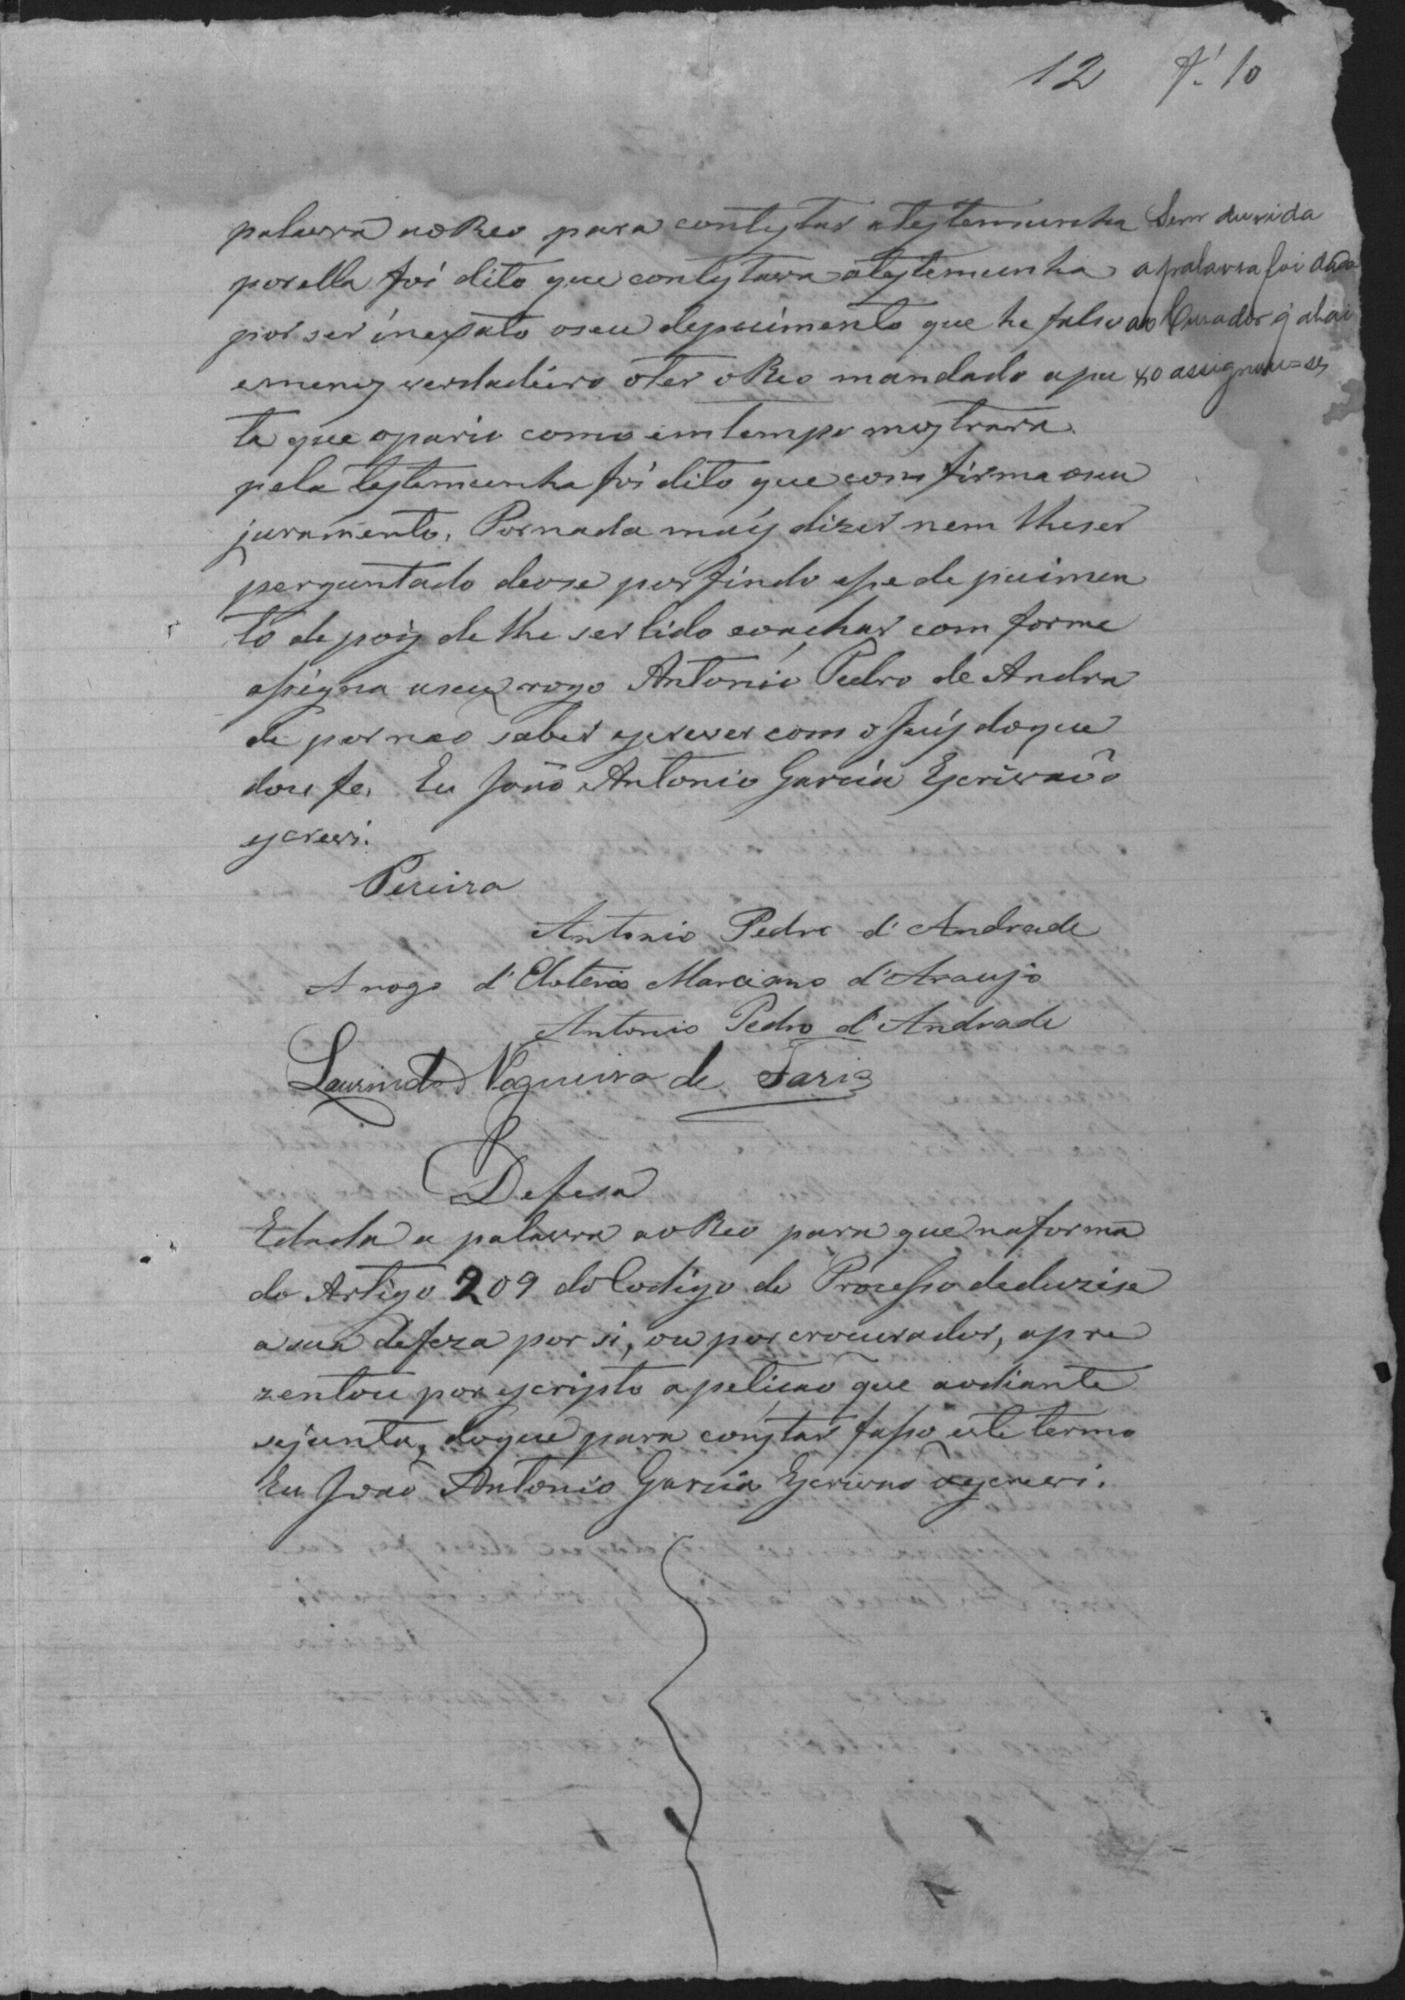 12 f. 10
palavra ao Reo para contestar a testemunha
por ella foi dito que contestava a testemunha
por ser inexsato o seu depuimento que he falso
e menos verdadeiro o ter o Reo mandado a pu
ta que o pario como em tempo mostrara.
pela testemunha foi dito que comfirma o seu
juramento. Por nada mais dizer nem lhe ser
perguntado deose por findo esse depuimen
to depois de lhe ser lido e o achar comforme
assigna a seu rogo Antonio Pedro de Andra
de por não saber escrever com o Juis do que
dou fe. Eu João Antonio Garcia Escrivão
escrevi.
Sem duvida
a palavra foi dada
ao Curador q' abai
xo assignou=se
Pereira
Antonio Pedro d'Andrade
A rogo d'Eloterio Marciano d'Araujo
Antonio Pedro d'Andrade
Laurindo Nogueira de Faria
Defesa
E dada a palavra ao Reo para que na forma
do Artigo 209 do Codigo do Processo deduzise
a sua defeza por si, ou por procurador, apre
zentou por escripto a petição que aodiante
se junta, do que para constar fasso este termo
Eu João Antonio Garcia Escrivão o escrevi.